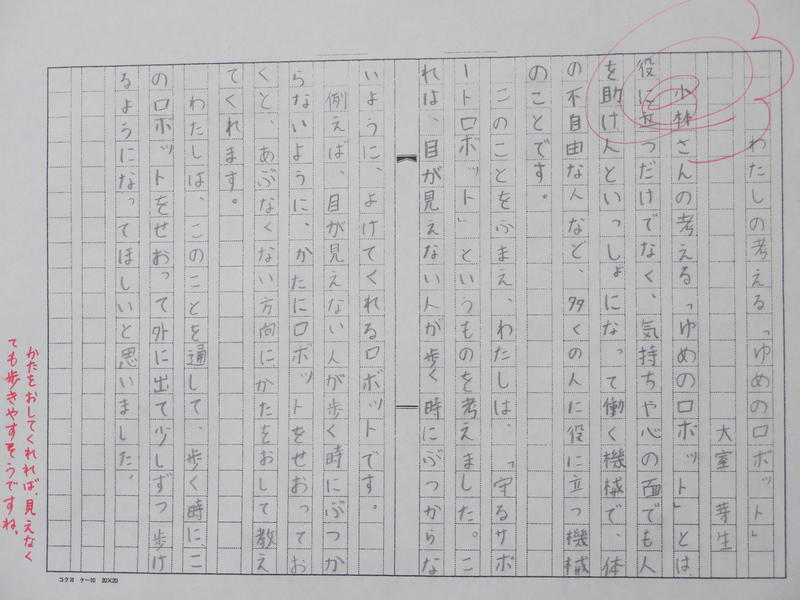 わたしの考える「ゆめのロボット」
大室 芽生
小林さんの考える「ゆめのロボット」とは、
役に立つだけでなく、気持ちや心の面でも人
を助け人といっしょになって働く機械で、体
の不自由な人など、多くの人に役に立つ機械
のことです。
このことをふまえ、わたしは、「守るサポ
ートロボット」というものを考えました。こ
れは、目が見えない人が歩く時にぶつからな
いように、よけてくれるロボットです。
例えば、目が見えない人が歩く時にぶつか
らないように、かたにロボットをせおってお
くと、あぶなくない方向にかたをおして教え
てくれます。
わたしは、このことを通して、歩く時に、こ
のロボットをせおって外に出て少しずつ歩け
るようになってほしいと思いました。
かたをおしてくれれば、見えなく
ても歩きやすそうですね。
コクヨ ケー10 20×20